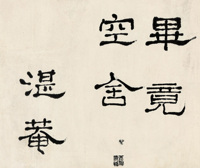 畢竟
空舍
湛菴